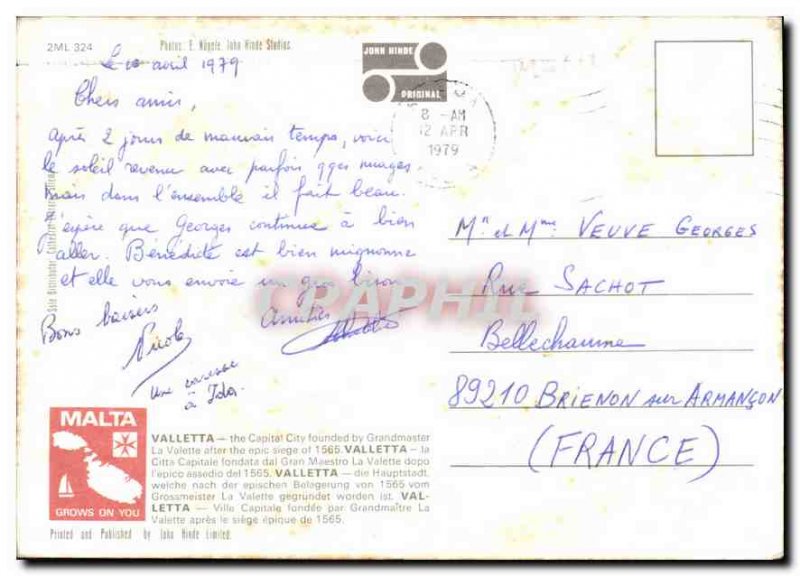 2ML 324
Photos: E. Nägele, John Hinde Studios.
JOHN HINDE
ORIGINAL
8 - AM
12 APR
1979
Le 10 avril 1979
Chers amis,
Après 2 jours de mauvais temps, voici
le soleil revenu avec parfois qqes nuages
mais dans l'ensemble il fait beau.
J'espère que Georges continue à bien
aller. Bénédicte est bien mignonne
et elle vous envoie un gros bisou
Bons baisers
Amitiés
Nicole
Une caresse
à
Mr et Mme VEUVE GEORGES
Rue SACHOT
Bellechaume
89210 BRIENON sur ARMANÇON
(FRANCE)
CRAPHIL
Sole Distributor:
MALTA
GROWS ON YOU
VALLETTA — the Capital City founded by Grandmaster
La Valette after the epic siege of 1565. VALLETTA — la
Citta Capitale fondata dal Gran Maestro La Valette dopo
l'epico assedio del 1565. VALLETTA — die Hauptstadt,
welche nach der epischen Belagerung von 1565 vom
Grossmeister La Valette gegründet worden ist. VAL-
LETTA — Ville Capitale fondée par Grandmaître La
Valette après le siège épique de 1565.
Printed and Published by John Hinde Limited.